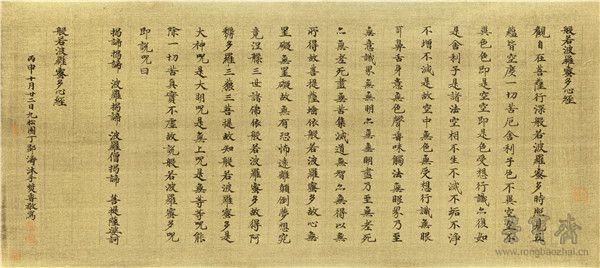 般若波羅蜜多心經
觀自在菩薩行深般若波羅蜜多時照見五
蘊皆空度一切苦厄舍利子色不異空空不
異色色即是空空即是色受想行識亦復如
是舍利子是諸法空相不生不滅不垢不淨
不增不減是故空中無色無受想行識無眼
耳鼻舌身意無色聲香味觸法無眼界乃至
無意識界無無明亦無無明盡乃至無老死
亦無老死盡無苦集滅道無智亦無得以無
所得故菩提薩埵依般若波羅蜜多故心無
罣礙無罣礙故無有恐怖遠離顛倒夢想究
竟涅槃三世諸佛依般若波羅蜜多故得阿
耨多羅三藐三菩提故知般若波羅蜜多是
大神咒是大明咒是無上咒是無等等咒能
除一切苦真實不虛故說般若波羅蜜多咒
即說咒曰
揭諦揭諦 波羅揭諦 波羅僧揭諦 菩提薩婆訶
般若波羅蜜多心經
丙申十月廿二日九松園丁鄧濤沐手焚香敬寫
榮寶齋
www.rongbaozhai.cn